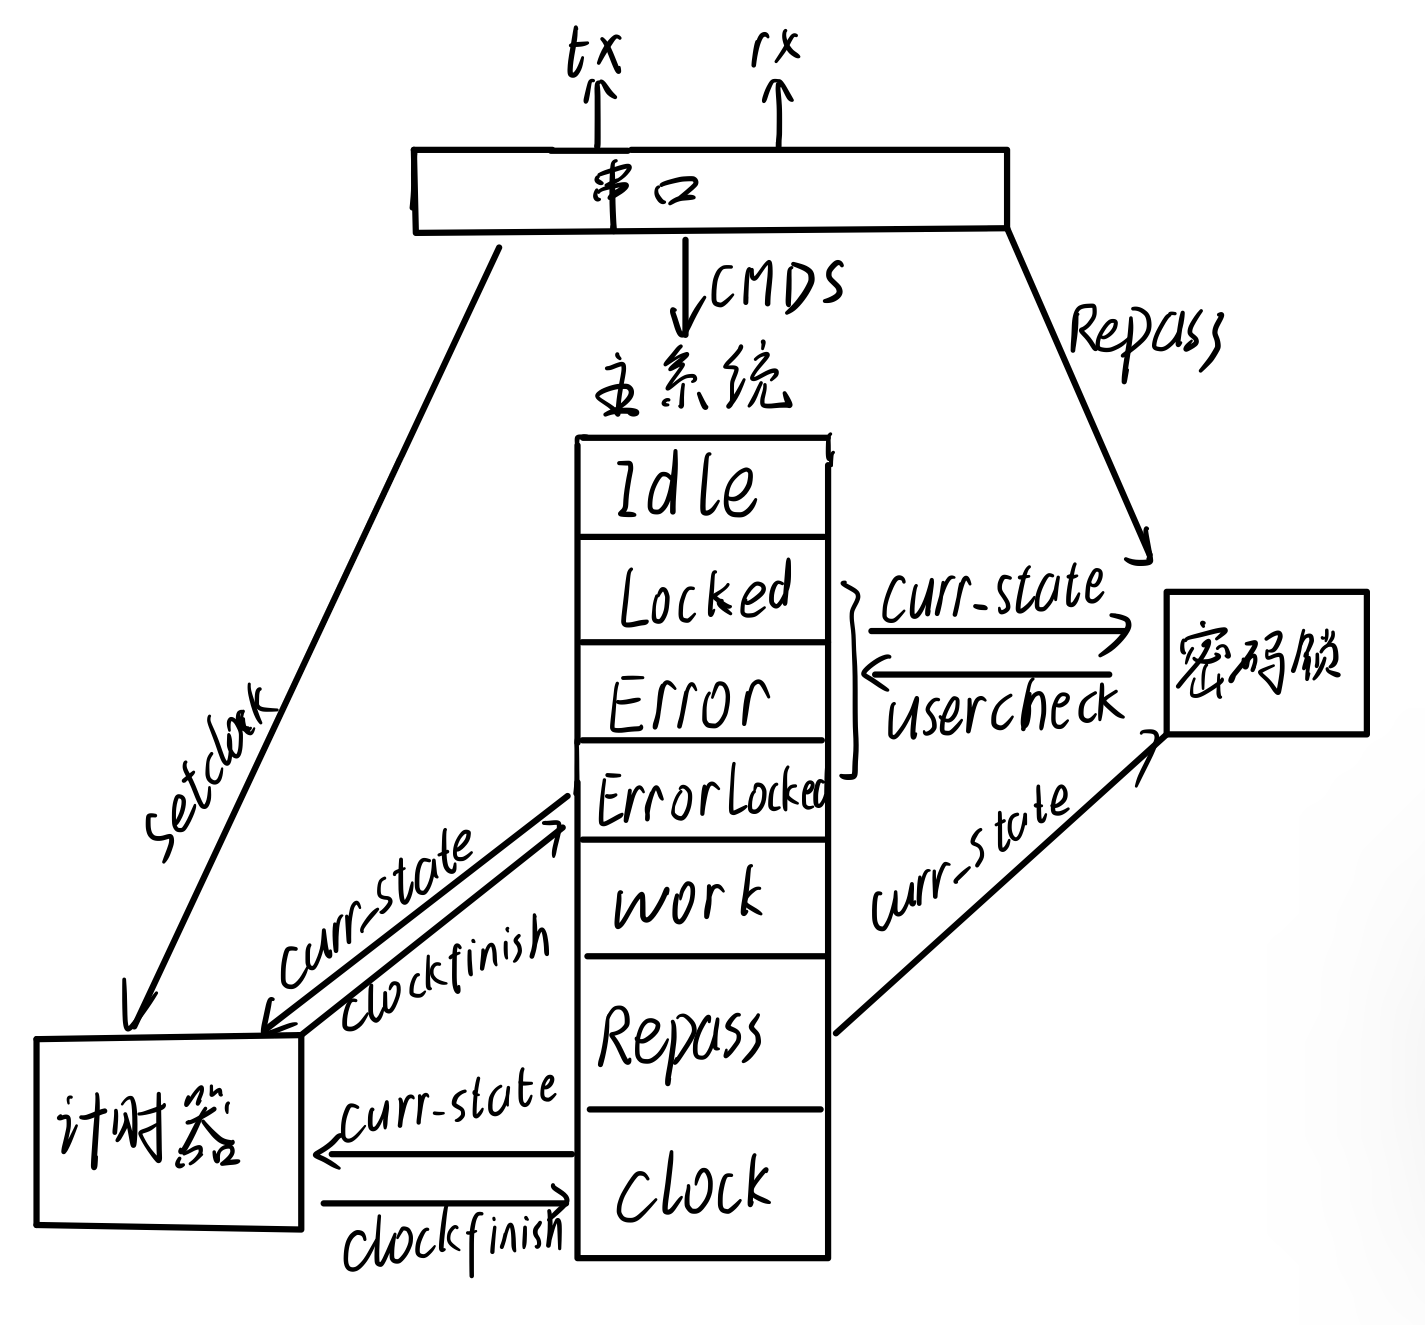 tx
rx
串口
CMDS
Repass
主系统
Idle
Locked
Error
ErrorLocked
work
Repass
clock
curr_state
usercheck
密码锁
curr_state
setclock
curr_state
clockfinish
计时器
curr_state
clockfinish